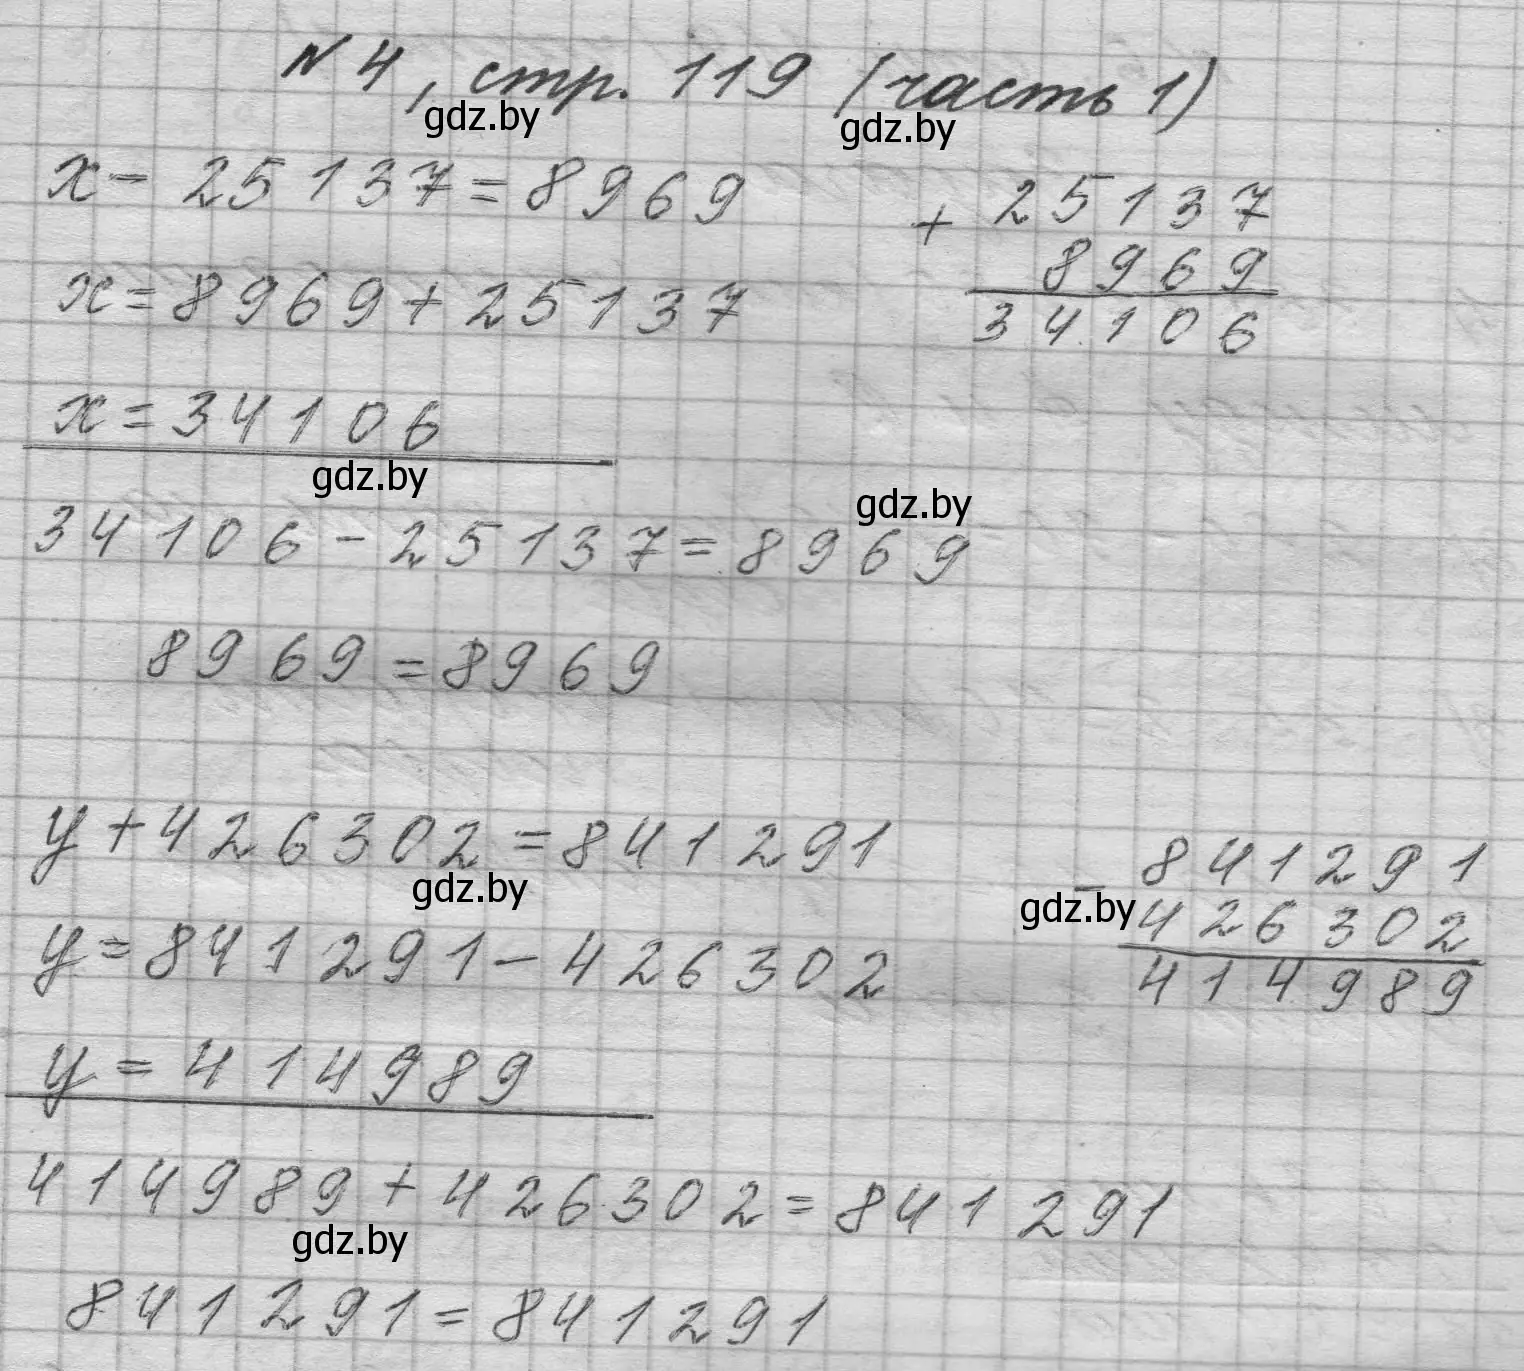 N 4, стр. 119 (часть 1)
gdz.by gdz.by
x - 25137 = 8969
x = 8969 + 25137
x = 34106
+ 25137
8969
34106
gdz.by
34106 - 25137 = 8969
gdz.by
8969 = 8969
y + 426302 = 841291
gdz.by
y = 841291 - 426302
y = 414989
- 841291
gdz.by
426302
414989
414989 + 426302 = 841291
gdz.by
841291 = 841291